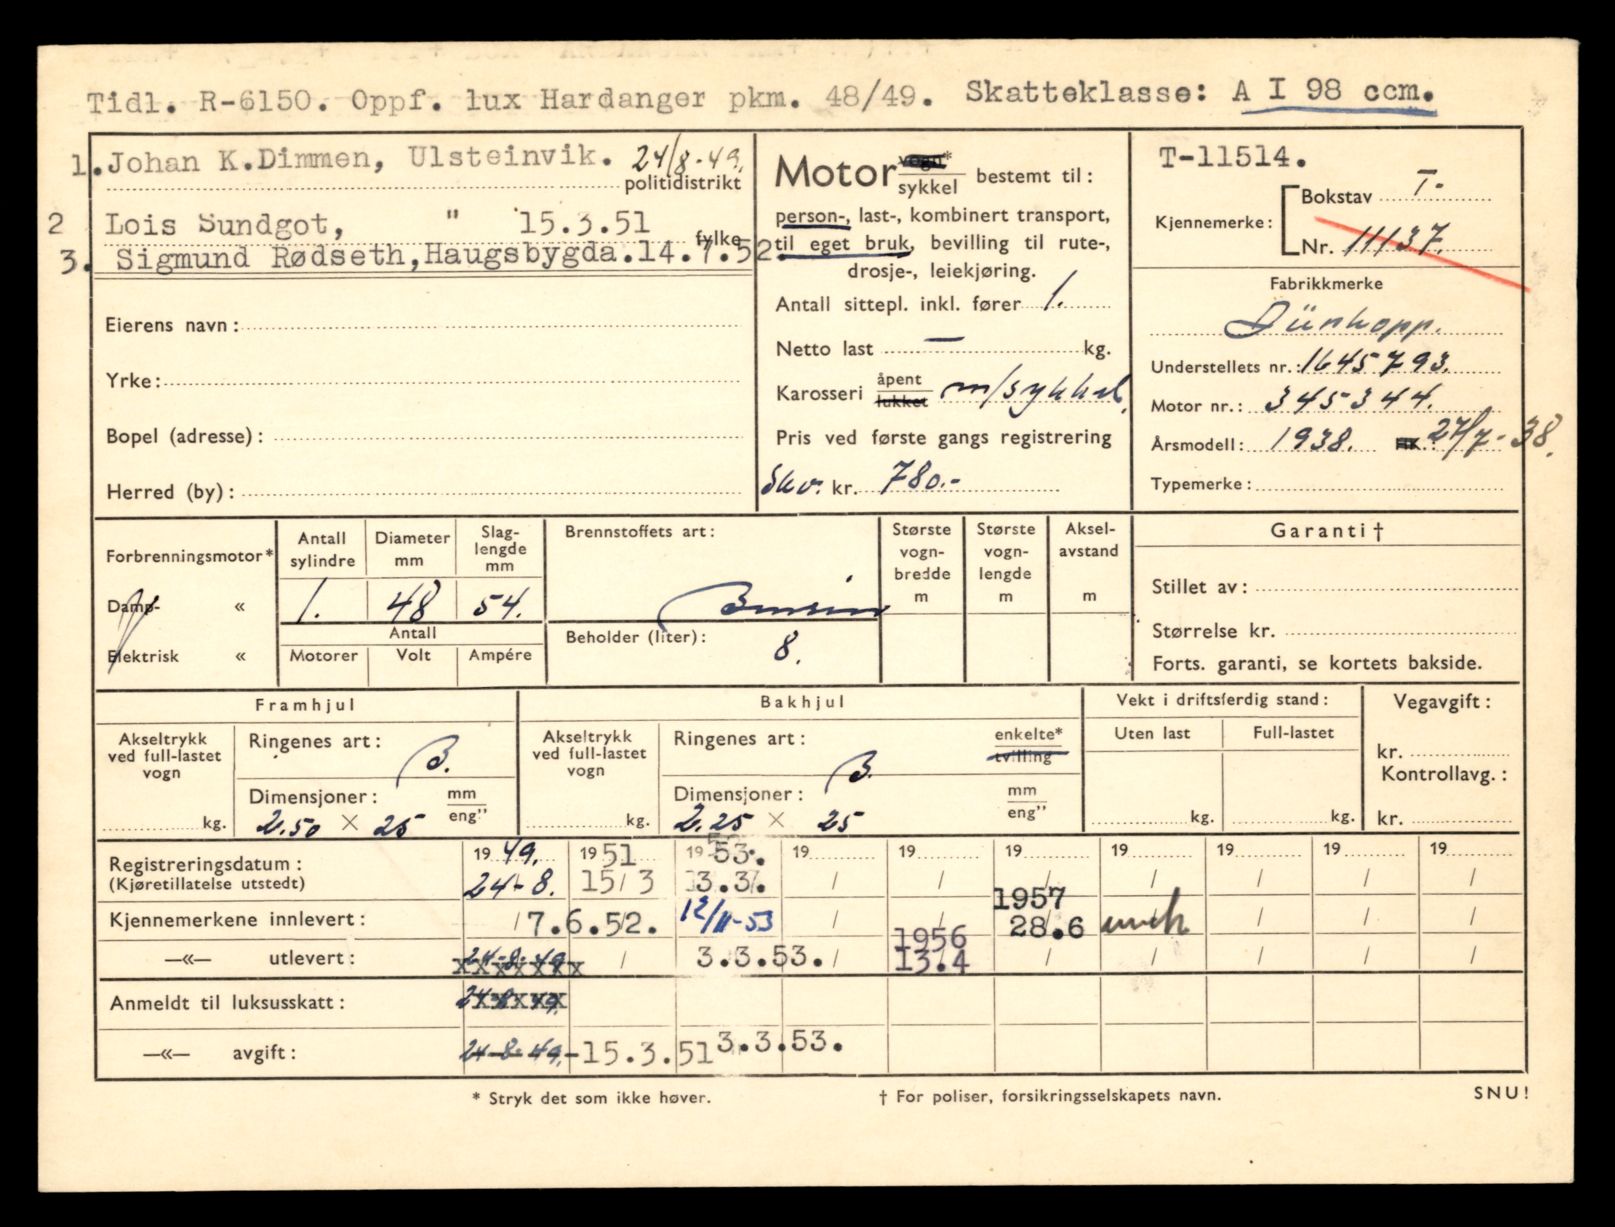 Tidl. R-6150. Oppf. lux Hardanger pkm. 48/49. Skatteklasse: A I 98 ccm.
1. Johan K.Dimmen, Ulsteinvik. 24/8-49.
politidistrikt
2 Lois Sundgot, " 15.3.51
fylke
3. Sigmund Rødseth, Haugsbygda. 14.7.52
Eierens navn:
Yrke:
Bopel (adresse):
Herred (by):
Motor vogn* sykkel bestemt til:
person-, last-, kombinert transport,
til eget bruk, bevilling til rute-,
drosje-, leiekjøring.
Antall sittepl. inkl. fører 1.
Netto last — kg.
Karosseri åpent lukket m/sykkel.
Pris ved første gangs registrering
Skv. kr. 780.-
T-11514.
Kjennemerke: Bokstav T-
Nr. 11137.
Fabrikkmerke
Dürkopp.
Understellets nr.: 1645793.
Motor nr.: 345344.
Årsmodell: 1938. 27/7-38.
Typemerke:
Forbrenningsmotor*
Damp- «
Elektrisk «
Antall sylindre 1.
Diameter mm 48
Slaglengde mm 54.
Antall
Motorer Volt Ampére
Brennstoffets art:
Bensin
Beholder (liter): 8.
Største vogn-bredde m
Største vogn-lengde m
Aksel-avstand m
Garanti †
Stillet av:
Størrelse kr.
Forts. garanti, se kortets bakside.
Framhjul
Akseltrykk ved full-lastet vogn
kg.
Ringenes art: B.
Dimensjoner: mm eng"
2.50 × 25
Bakhjul
Akseltrykk ved full-lastet vogn
kg.
Ringenes art: B. enkelte* tvilling
Dimensjoner: mm eng"
2.25 × 25
Vekt i driftsferdig stand:
Uten last Full-lastet
kg. kg.
Vegavgift:
kr.
Kontrollavg.:
kr.
Registreringsdatum: 19 49. 19 51 19 53. 19 19 19 19 19 19 19
(Kjøretillatelse utstedt) 24-8. 15/3 3.3/. / / / / / / /
Kjennemerkene innlevert: / 7.6.52. 12/11-53 / / 1957 28.6 / / / /
—«— utlevert: 24-8-49 / 3.3.53. / 1956 13.4 / / / / /
Anmeldt til luksusskatt: 24-8-49.
—«— avgift: 24-8-49.-15.3.51 3.3.53.
* Stryk det som ikke høver.
† For poliser, forsikringsselskapets navn.
SNU!